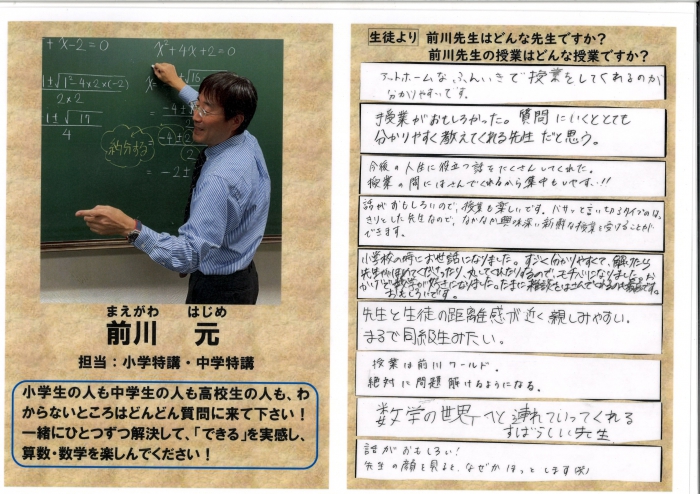 + x-2=0
x²+4x+2=0
1±√1²-4×2×(-2)
2×2
1±√17
4
約分する
= -2±
前川 元
まえがわ はじめ
担当：小学特講・中学特講
小学生の人も中学生の人も高校生の人も、わ
からないところはどんどん質問に来て下さい！
一緒にひとつずつ解決して、「できる」を実感し、
算数・数学を楽しんでください！
生徒より 前川先生はどんな先生ですか？
前川先生の授業はどんな授業ですか？
アットホームなふんいきで授業をしてくれるのが
分かりやすいです。
授業がおもしろかった。質問にいくととても
分かりやすく教えてくれる先生だと思う。
今後の人生に役立つ話をたくさんしてくれた。
授業の間にはさんでくれるから集中もしやすい!!
話がおもしろいので、授業も楽しいです。バサッと言い切るタイプのは、
きりとした先生なので、なかなか興味深い新鮮な授業を受けることが
できます。
小学校の時にお世話になりました。すごく分かりやすくて、解けたら
先生がほめてくださったり、丸してくれたりするので、モチベになりました。お
かげで数学が好きになりました。たまに雑談をはさんで
おもしろいです。
先生と生徒の距離感が近く親しみやすい。
まるで同級生みたい。
授業は前川ワールド。
絶対に問題解けるようになる。
数学の世界へと連れていってくれる
すばらしい先生
話がおもしろい！
先生の顔を見ると、なぜかほっとします(笑)